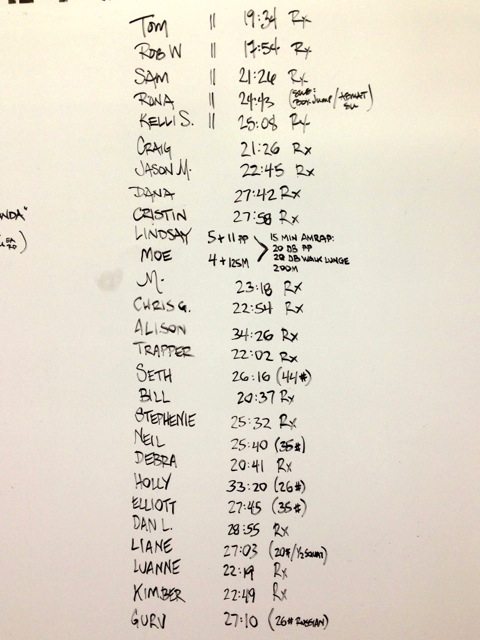 Tom || 19:34 Rx
ROB W || 17:54 Rx
SAM || 21:26 Rx
RONA || 24:43 (SUB: BOX JUMP/ABMAT SU)
KELLI S. || 25:08 Rx
CRAIG 21:26 Rx
JASON M. 22:45 Rx
DANA 27:42 Rx
CRISTIN 27:58 Rx
NDA"
LINDSAY 5+11 PP 15 MIN AMRAP:
20 DB PP
MOE 4+125M 20 DB WALK LUNGE
200M
M. 23:18 Rx
CHRIS G. 22:54 Rx
ALISON 34:26 Rx
TRAPPER 22:02 Rx
SETH 26:16 (44#)
BILL 20:37 Rx
STEPHENIE 25:32 Rx
NEIL 25:40 (35#)
DEBRA 20:41 Rx
HOLLY 33:20 (26#)
ELLIOTT 27:45 (35#)
DAN L. 28:55 Rx
LIANE 27:03 (20#/½ SQUAT)
LUANNE 22:19 Rx
KIMBER 22:49 Rx
GURV 27:10 (26# RUSSIAN)